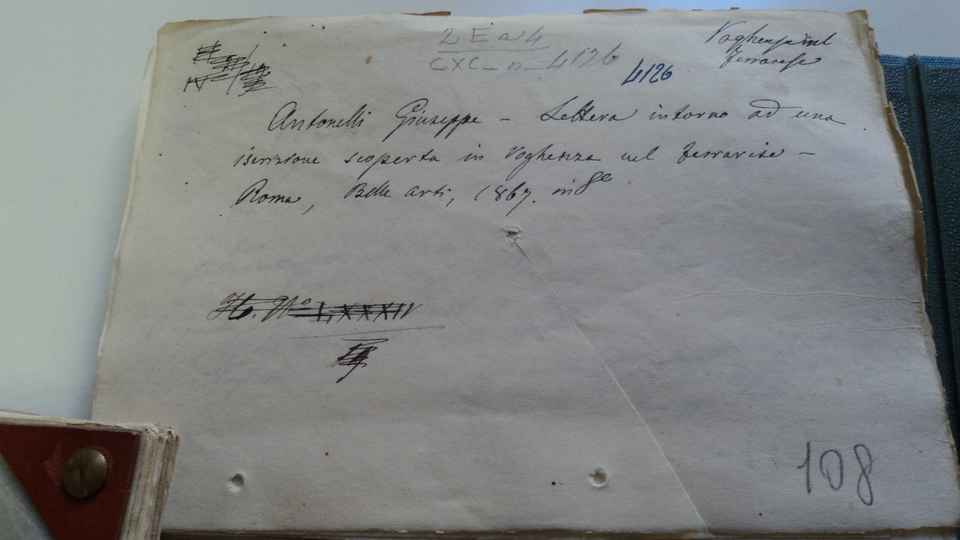 2 E n 4
CXC_n_4126
4126
ferrarese
Antonelli Giuseppe – Lettera intorno ad una
iscrizione scoperta in Voghenza nel ferrarese –
Roma, Belle arti, 1867. in 8º
N.º LXXXIV
108